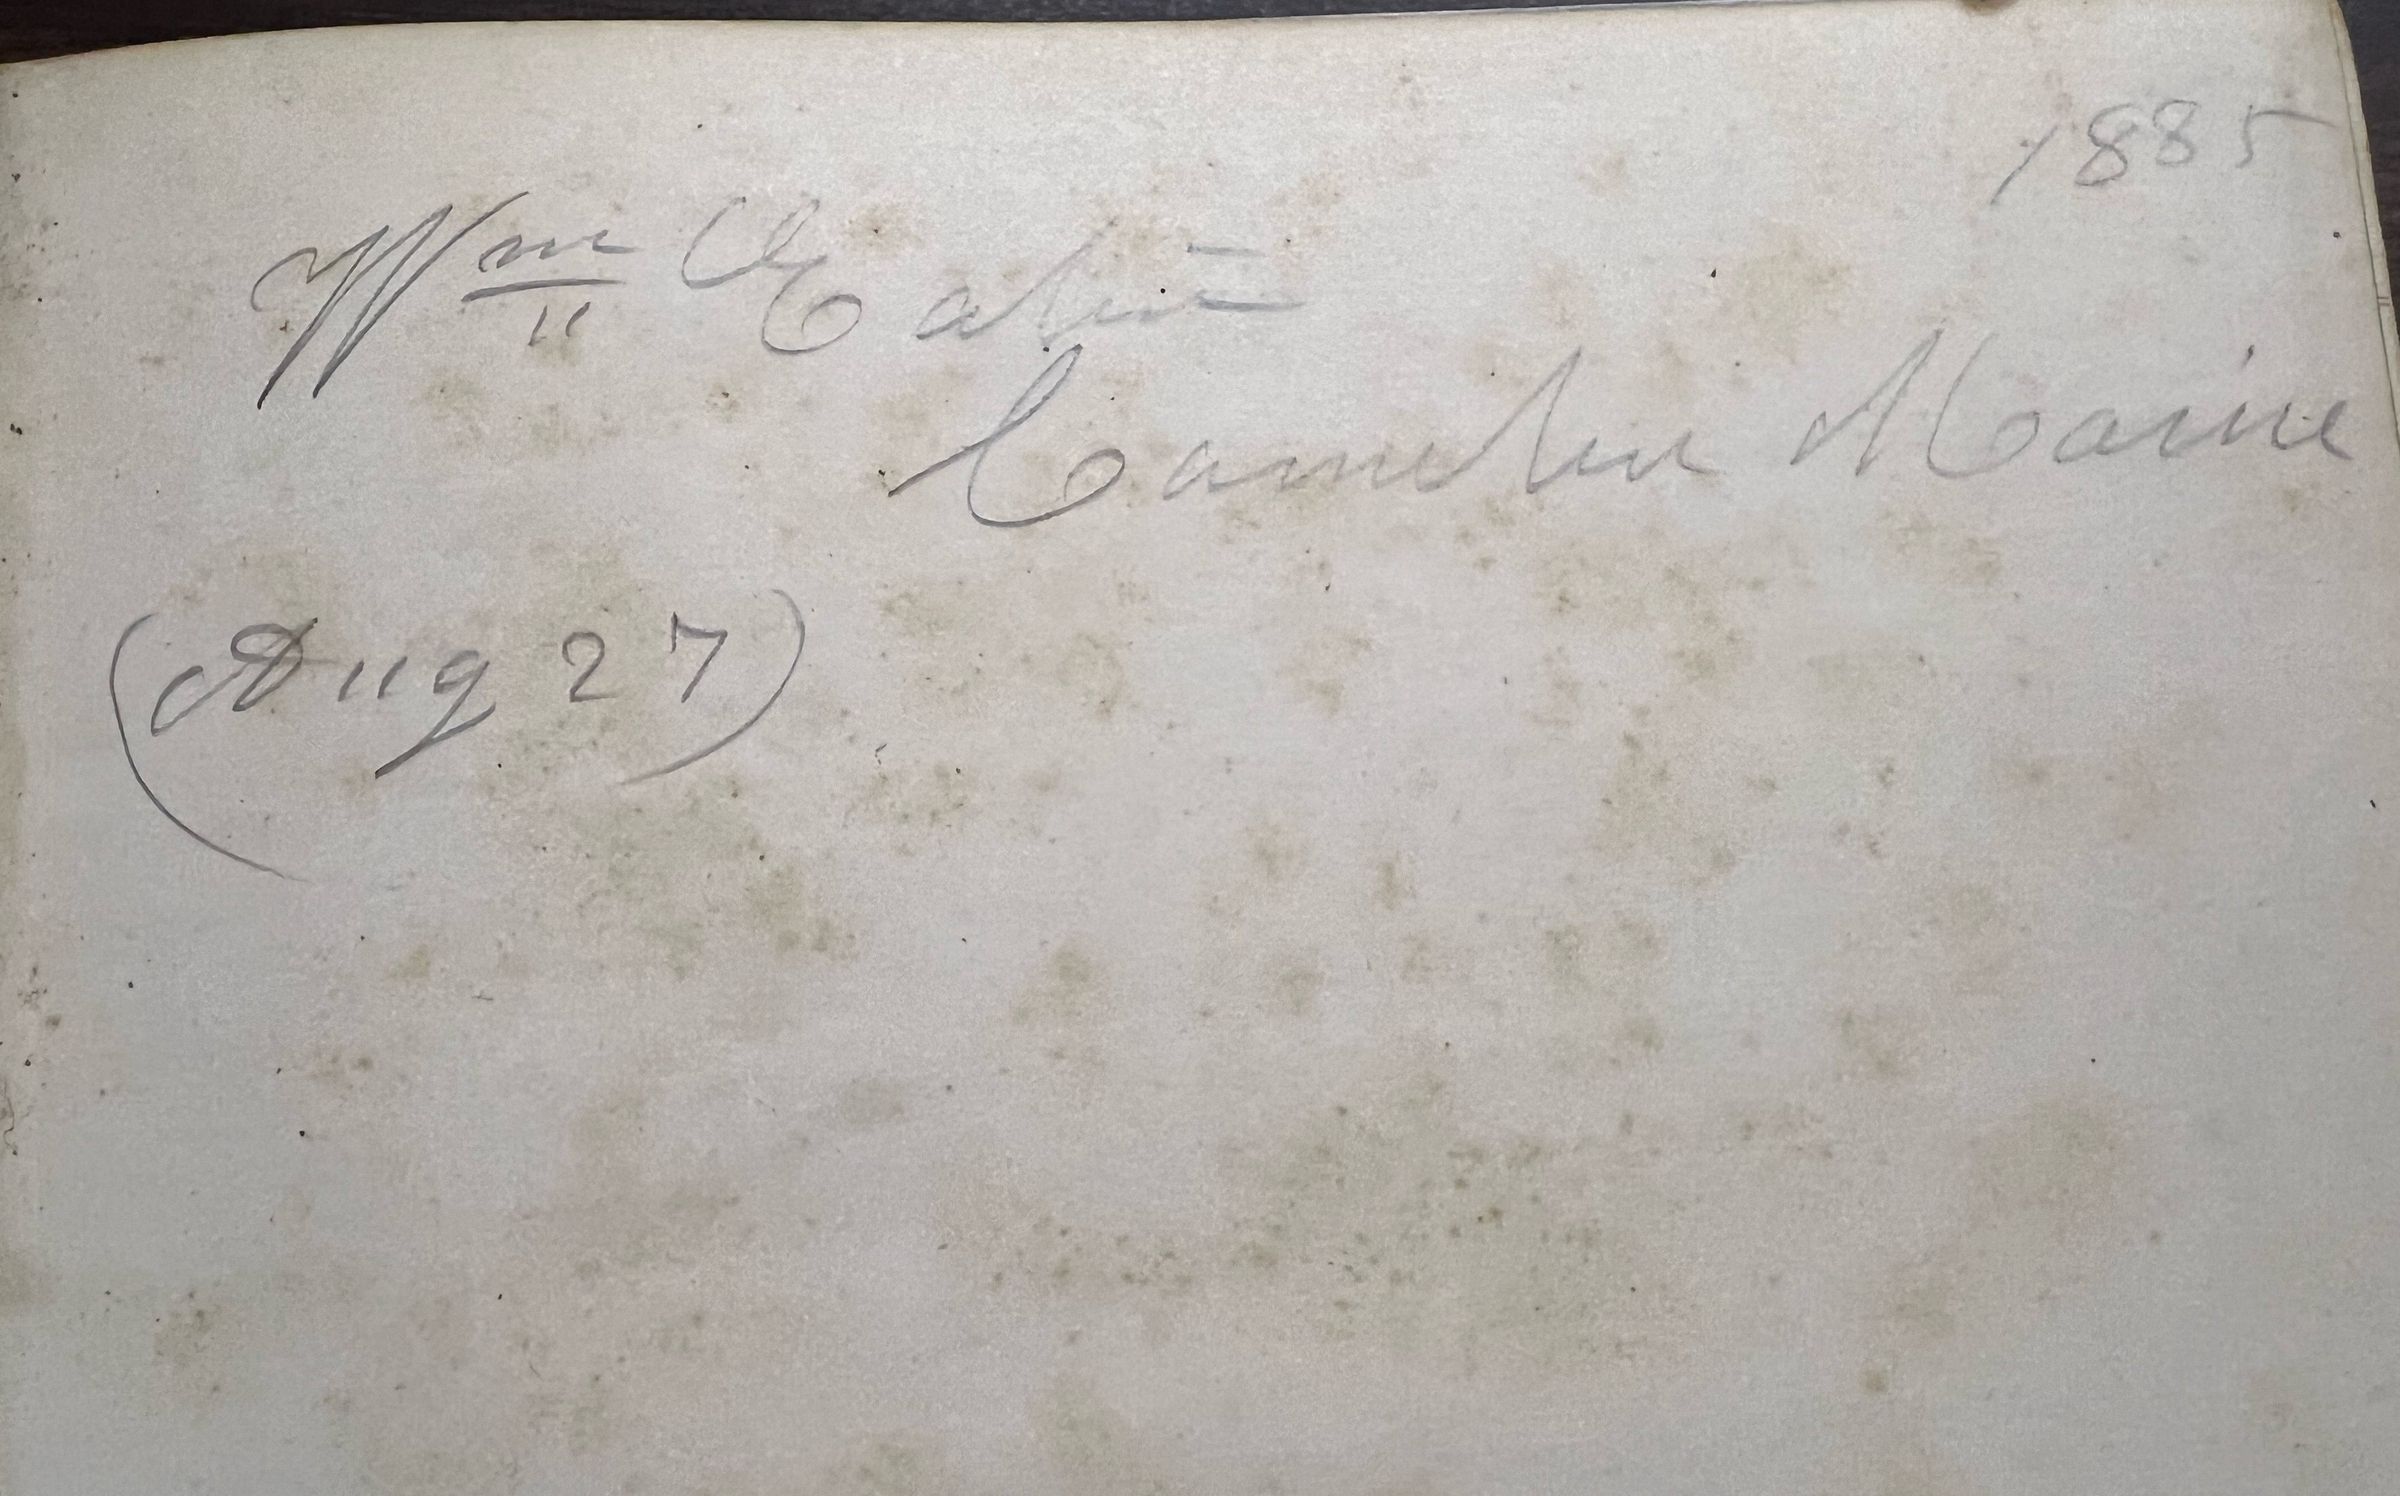 1885
Wm
Camden Maine
(Aug 27)